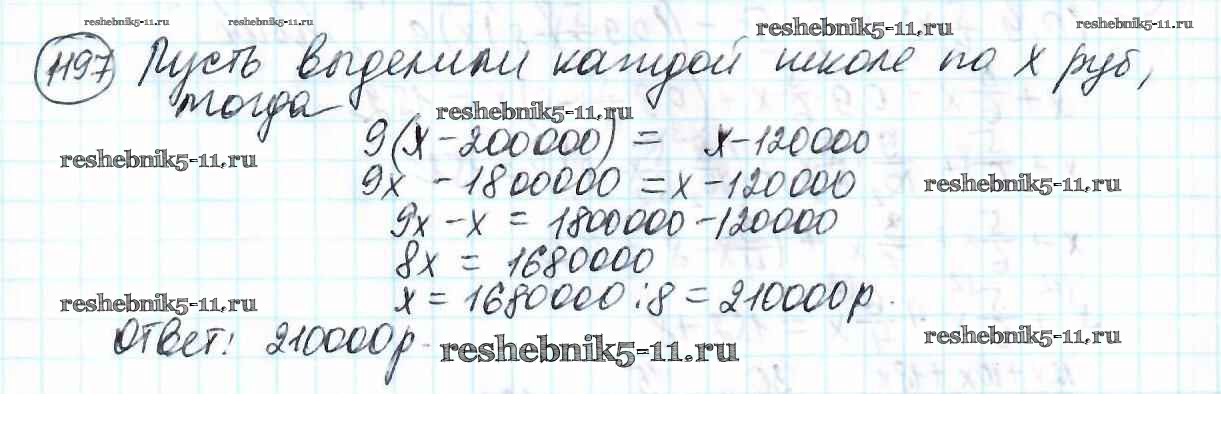 reshebnik5-11.ru reshebnik5-11.ru reshebnik5-11.ru reshebnik5-11.ru
1197 Пусть выделили каждой школе по x руб,
тогда reshebnik5-11.ru
9(x-200000) = x-120000
reshebnik5-11.ru
9x - 1800000 = x-120000 reshebnik5-11.ru
9x-x = 1800000-120000
8x = 1680000
reshebnik5-11.ru x = 1680000:8 = 210000р.
Ответ: 210000р. reshebnik5-11.ru reshebnik5-11.ru